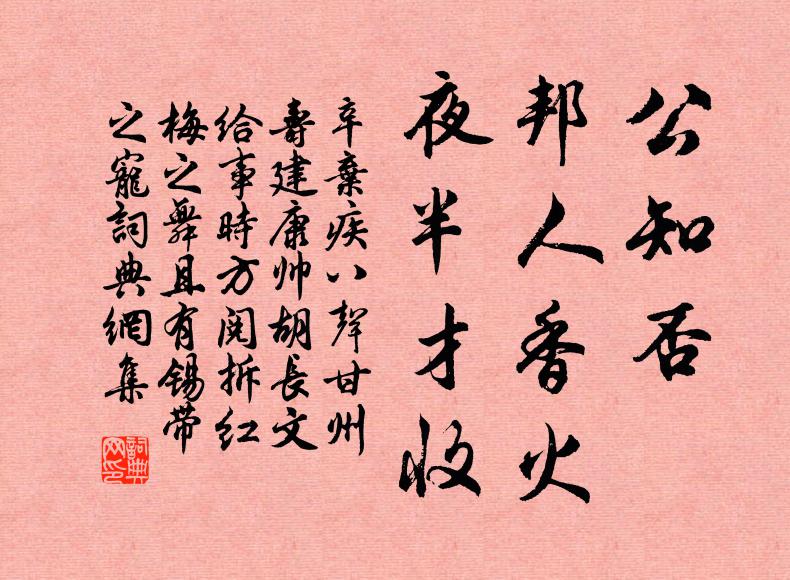 公知否
邦人香火
夜半才收
辛棄疾八聲甘州
壽建康帅胡長文
给事時方阅拆红
梅之舞且有锡带
之寵詞典網集
詞典网印